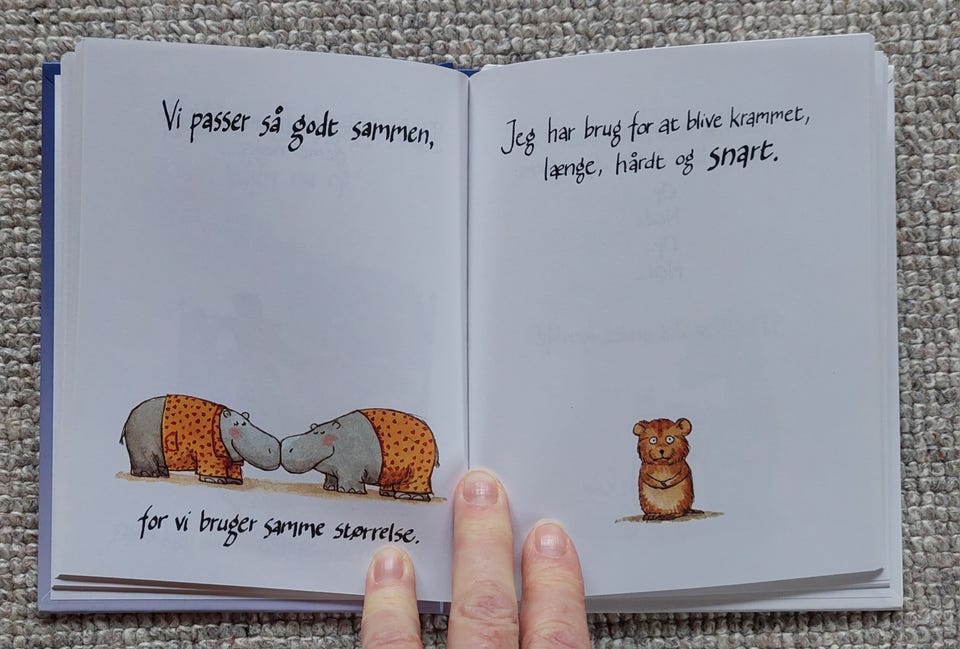 Vi passer så godt sammen,
for vi bruger samme størrelse.
Jeg har brug for at blive krammet,
længe, hårdt og snart.